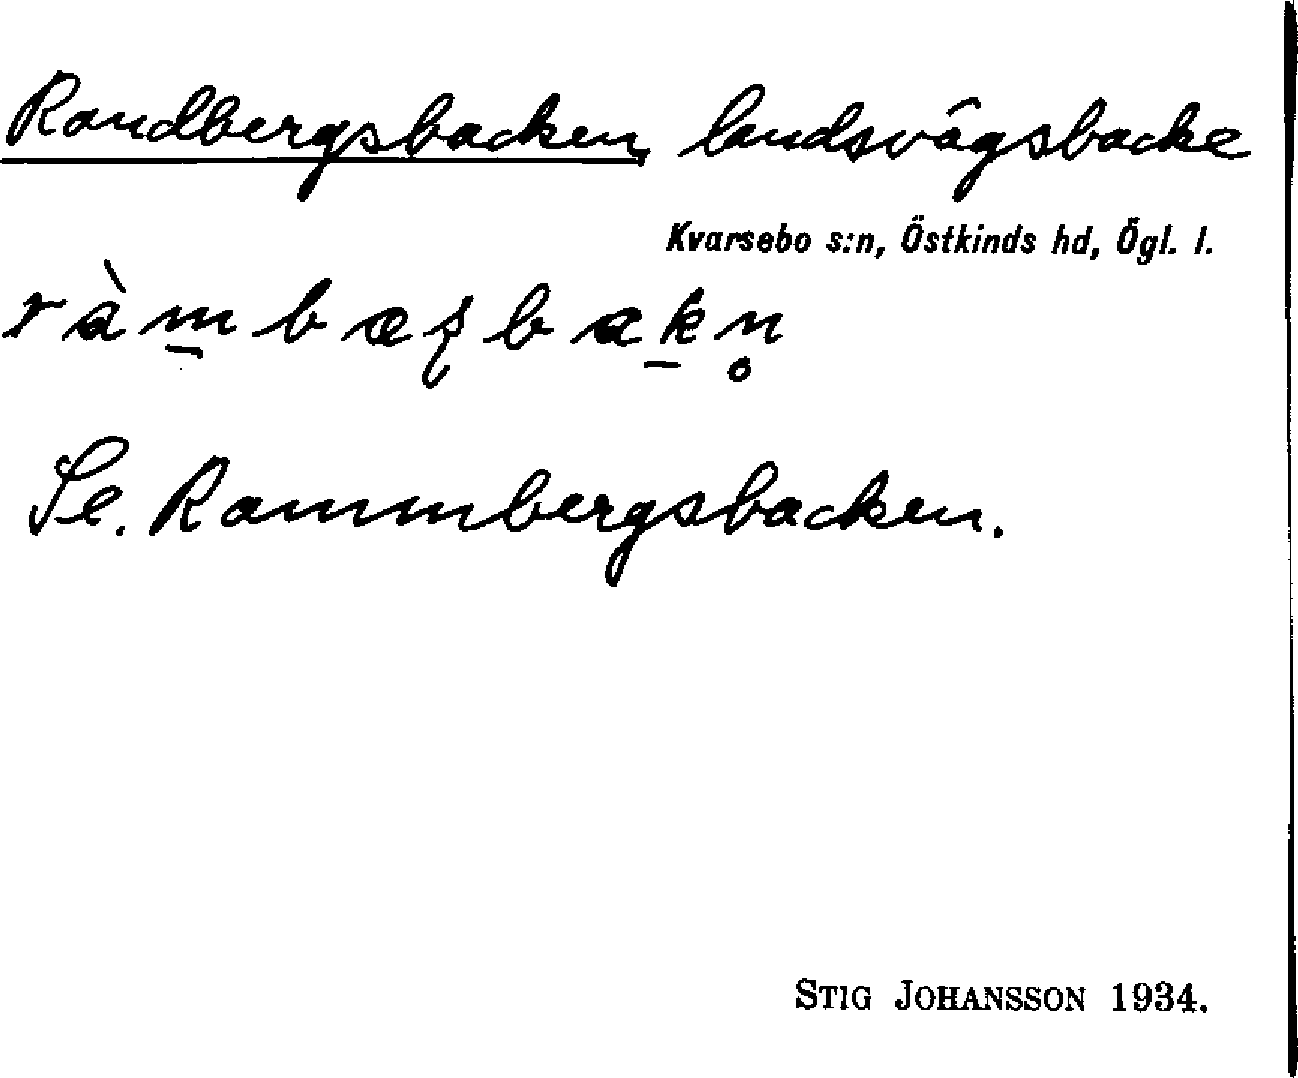 Randbergsbacken, landsvägsbacke
Kvarsebo s:n, Östkinds hd, Ögl. l.
ràm̱bæʂbaḵn̥
Se. Rammbergsbacken.
STIG JOHANSSON 1934.